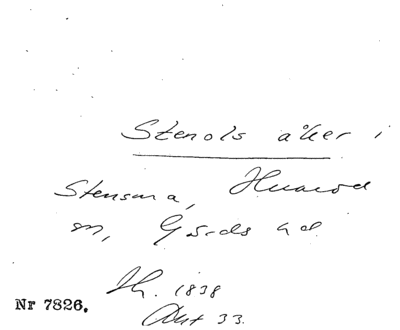 Stenols åker i
Stensma, Huaröd
sn, Gärds hd
1838
Akt 33.
Nr 7826.